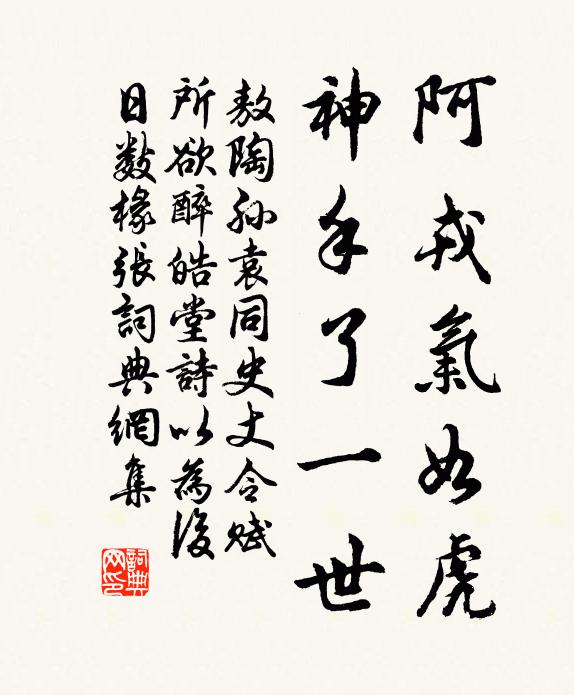 阿戎氣如虎
神手了一世
敖陶孙袁同史丈令賦
所欲醉皓堂詩以為後
日數椽張詞典網集
詞典
网印